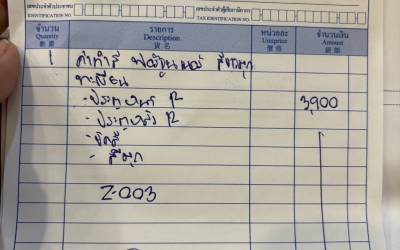 เลขประจำตัวประชาชน
IDENTIFICATION NO.
เลขประจำตัวผู้เสียภาษีอากร
TAX IDENTIFICATION NO.
จำนวน รายการ หน่วยละ จำนวนเงิน
Quantity Description Unitprice Amount
數量 貨名 價格 銀額
1 ค่าทำสี สีขาวมุก
ทะเบียน
- ประตูหน้า R 3,900
- ประตูหลัง R
- ขัดสี
- สีมุก
2-003